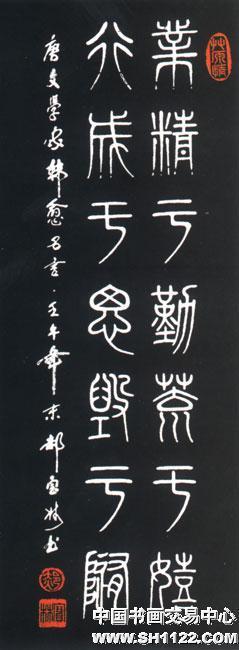 業精于勤荒于嬉
行成于思毀于隨
唐文學家韓愈名言·壬午年
中国书画交易中心
www.SH1122.com